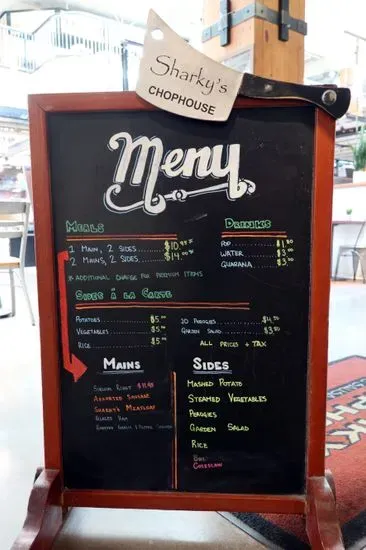 Sharky's
CHOPHOUSE
Menu
MEALS
1 MAIN, 2 SIDES $10.95
2 MAINS, 2 SIDES $14.00
* ADDITIONAL CHARGE FOR PREMIUM ITEMS
DRINKS
POP $1.80
WATER $3.00
GUARANA $3.50
SIDES À LA CARTE
POTATOES $5.00
VEGETABLES $5.00
RICE $5.00
10 PEROGIES $4.50
GARDEN SALAD $3.50
ALL PRICES + TAX
MAINS
SIRLOIN ROAST
ASSORTED SAUSAGE
SHARKY'S MEATLOAF
GLAZED HAM
ROASTED GARLIC & CHICKEN
SIDES
MASHED POTATO
STEAMED VEGETABLES
PEROGIES
GARDEN SALAD
RICE
COLESLAW